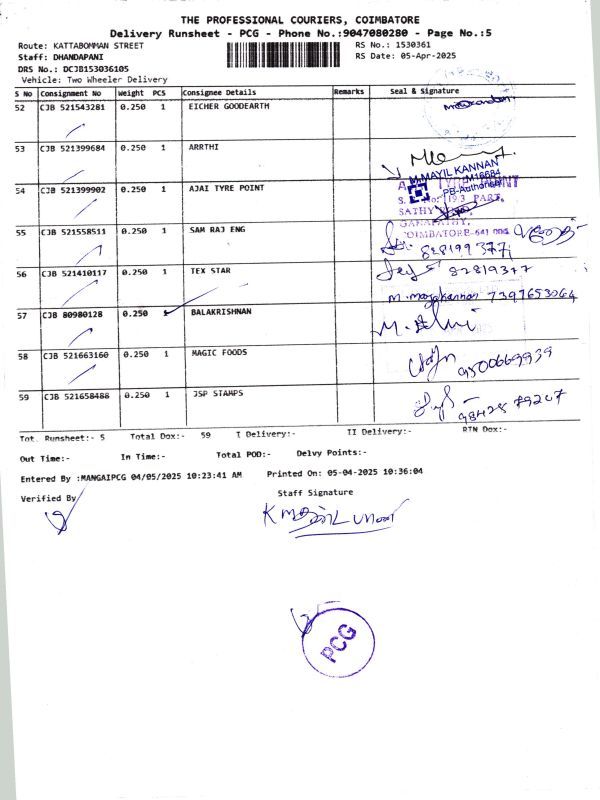 THE PROFESSIONAL COURIERS, COIMBATORE
Delivery Runsheet - PCG - Phone No.:9047080280 - Page No.:5
Route: KATTABOMMAN STREET
RS No.: 1530361
Staff: DHANDAPANI
RS Date: 05-Apr-2025
DRS No.: DCJB153036105
Vehicle: Two Wheeler Delivery
S No Consignment No Weight PCS Consignee Details Remarks Seal & Signature
52 CJB 521543281 0.250 1 EICHER GOODEARTH
53 CJB 521399684 0.250 1 ARRTHI
M.MAYIL KANNAN
M16684
PB-Authorised
54 CJB 521399902 0.250 1 AJAI TYRE POINT
SATHY
GANAPATHY,
COIMBATORE-641 006
55 CJB 521558511 0.250 1 SAM RAJ ENG
56 CJB 521410117 0.250 1 TEX STAR
M. mayilkannan 7397653064
57 CJB 80980128 0.250 1 BALAKRISHNAN
58 CJB 521663160 0.250 1 MAGIC FOODS
9500669939
59 CJB 521658488 0.250 1 JSP STAMPS
98428 79207
Tot. Runsheet:- 5 Total Dox:- 59 I Delivery:- II Delivery:- RTN Dox:-
Out Time:- In Time:- Total POD:- Delvy Points:-
Entered By :MANGAIPCG 04/05/2025 10:23:41 AM Printed On: 05-04-2025 10:36:04
Verified By
Staff Signature
PCG